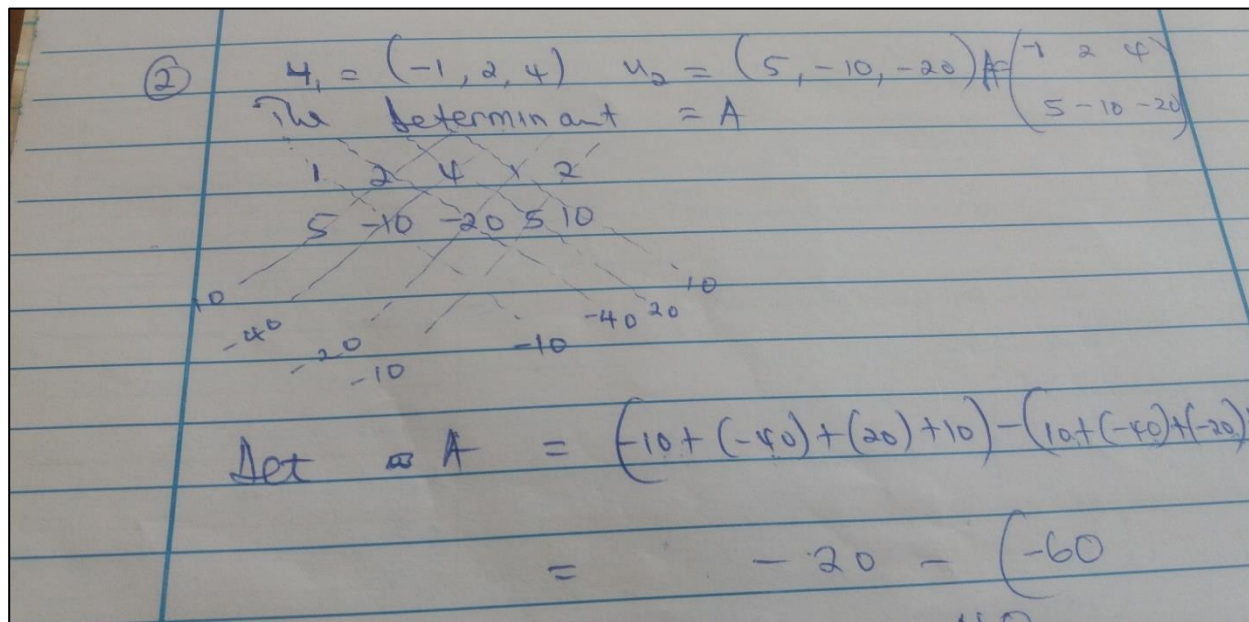 ② u₁ = (-1, 2, 4) u₂ = (5, -10, -20) A= (-1 2 4
5 -10 -20)
The determinant = A
1 2 4 1 2
5 -10 -20 5 10
10 -40 -20 -10 -10 -40 20 10
Det A = (-10 + (-40) + (20) + 10) - (10 + (-40) + (-20)
= - 20 - (-60